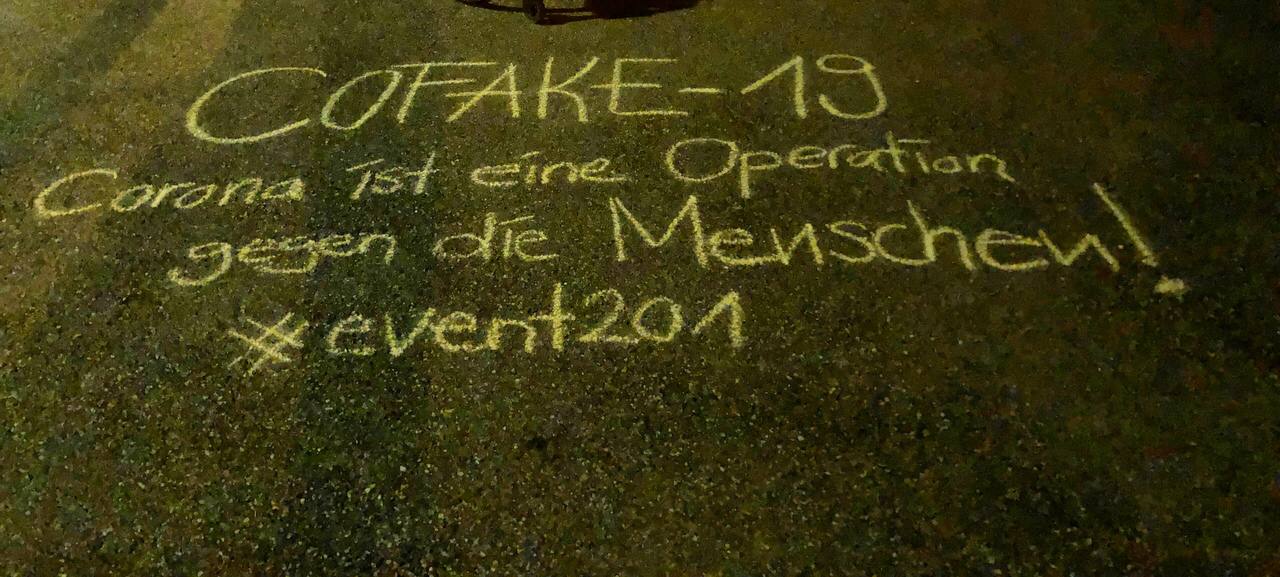 COFAKE-19
Corona ist eine Operation
gegen die Menschen!
#event201